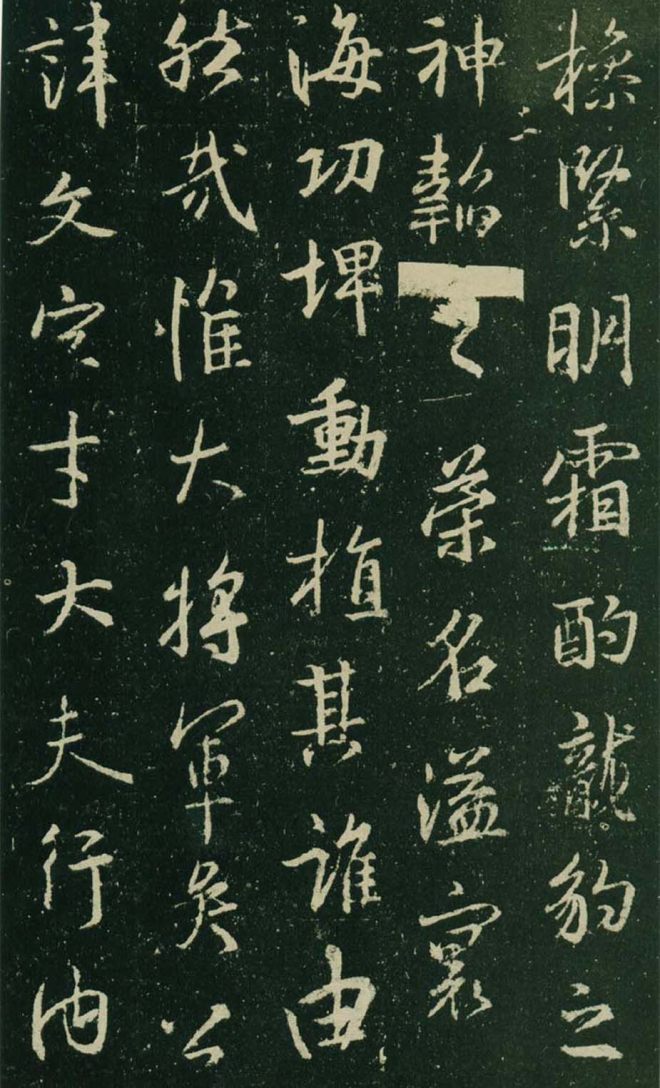 緊明霜酌龍豹之
神韜之榮名溢寰
海功埤動植其誰由
然哉惟大將軍矣公
諱文字才大夫行內